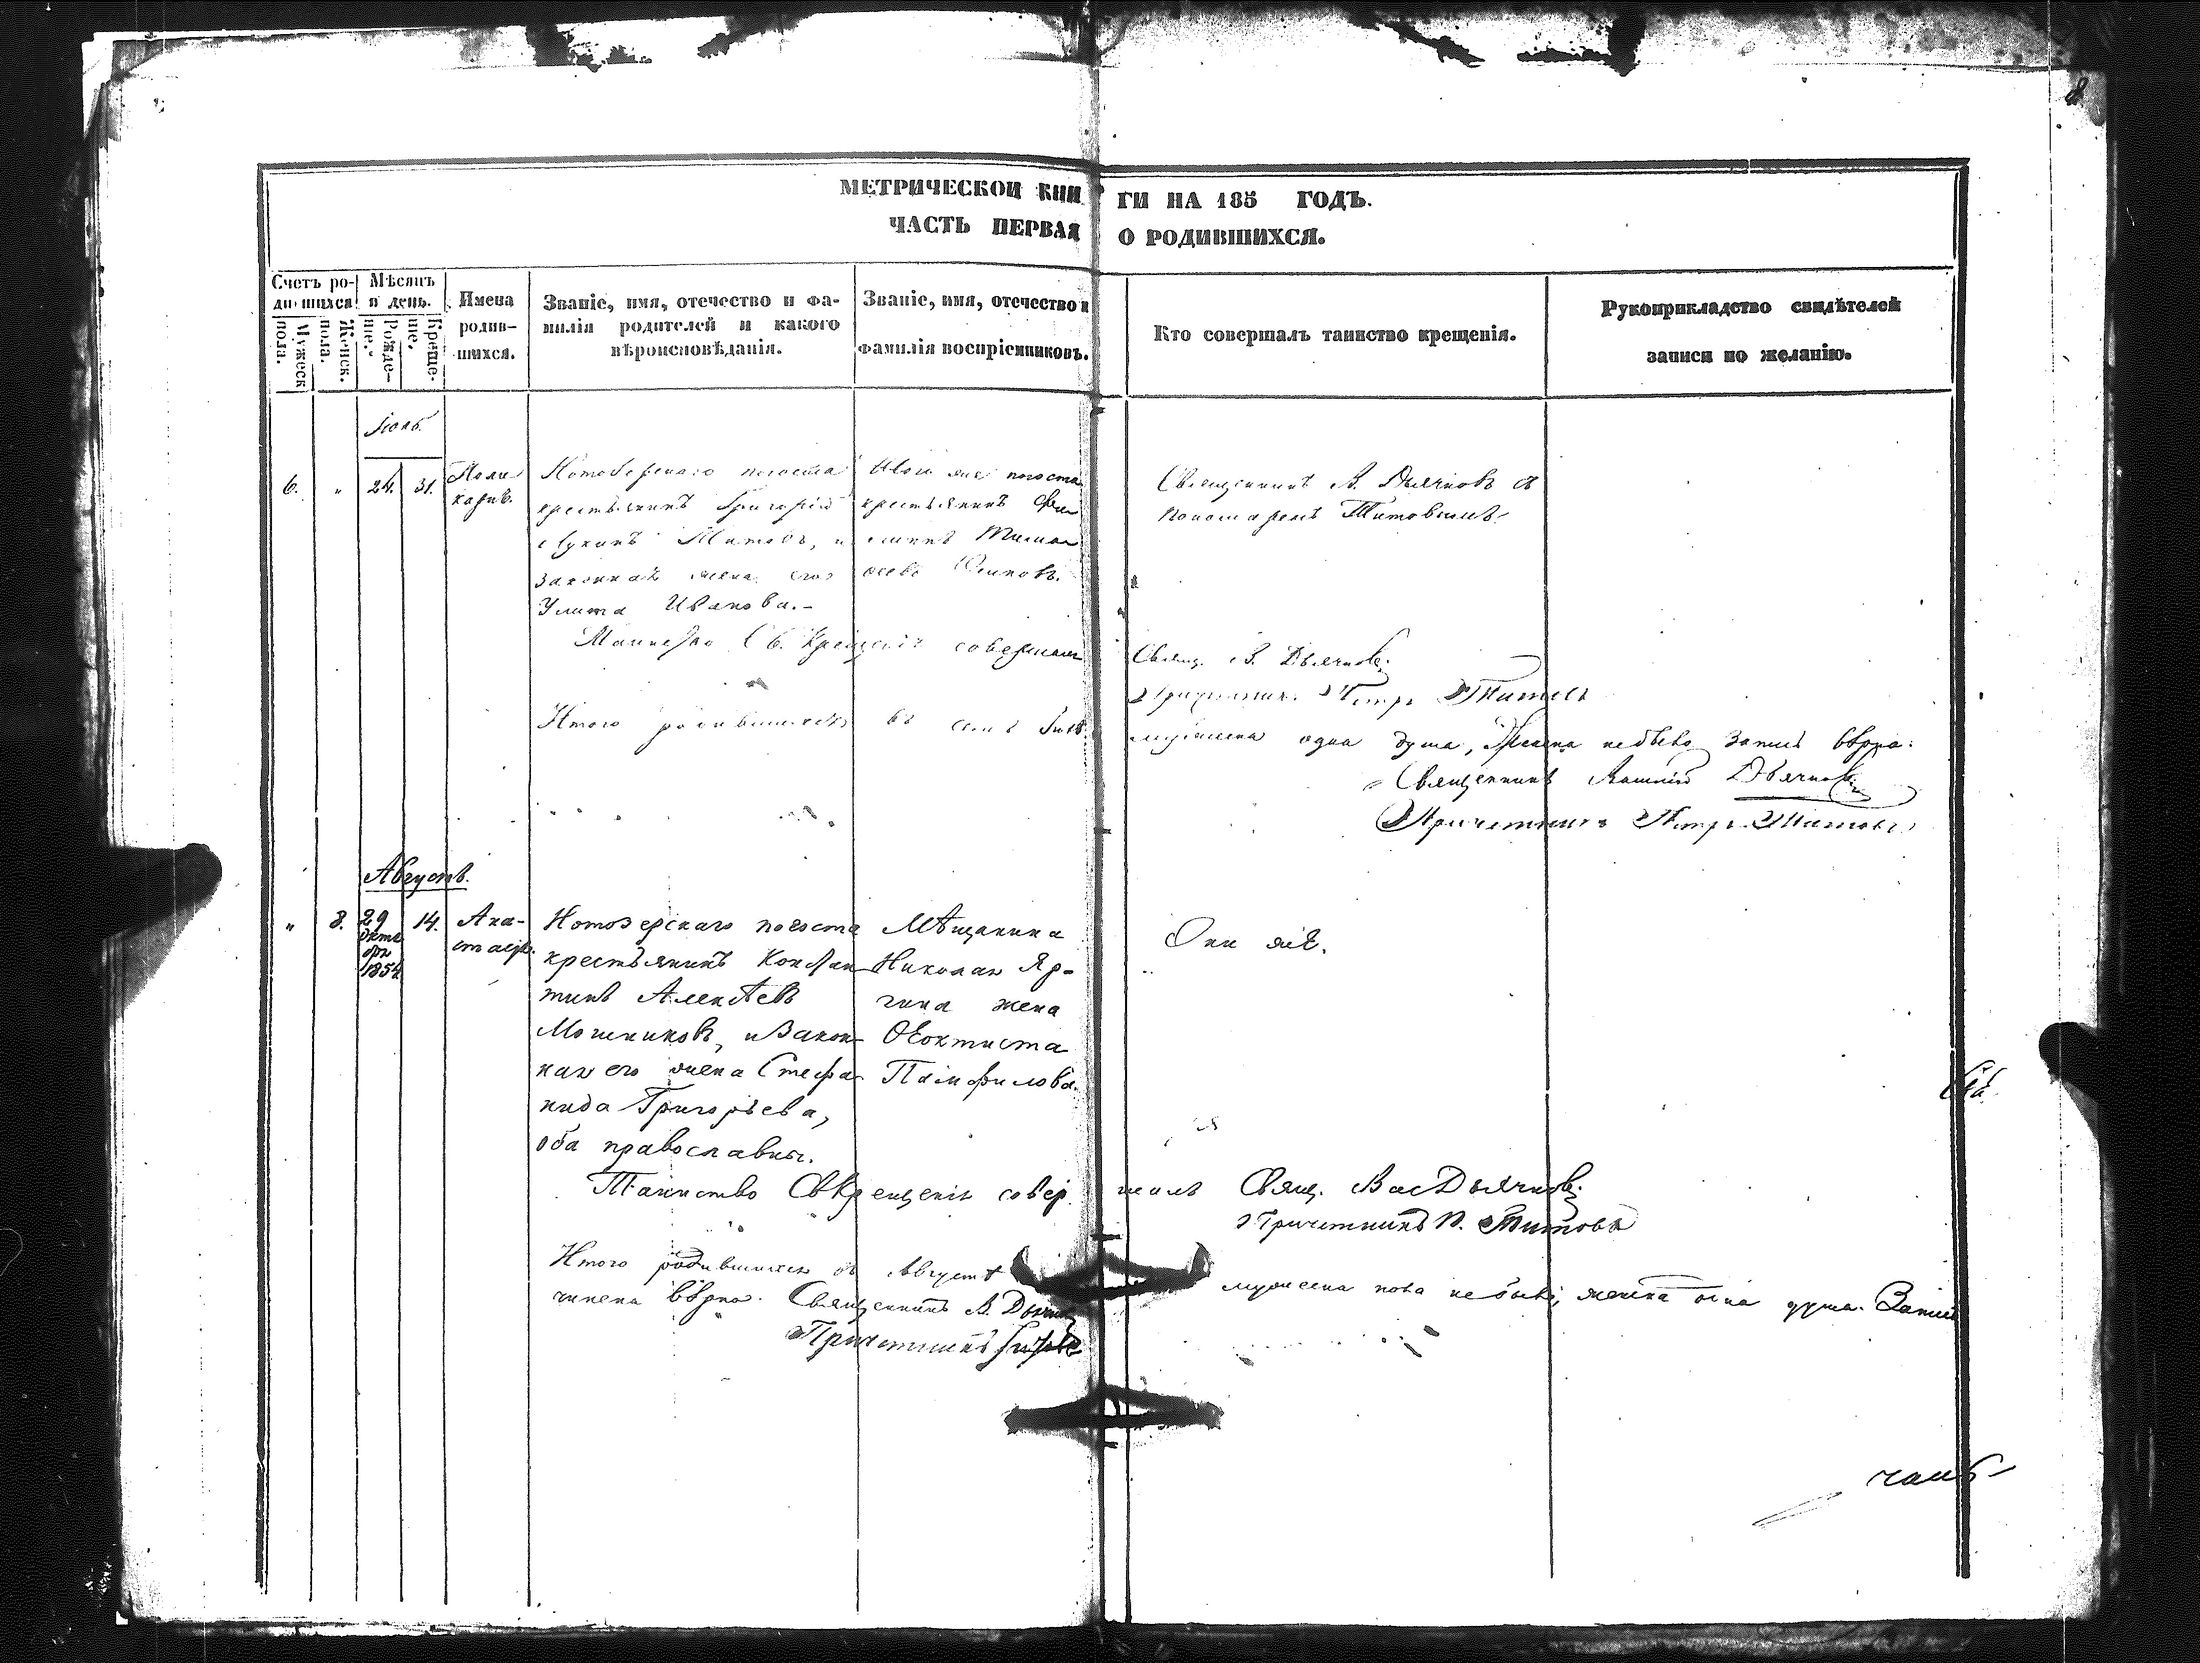 МЕТРИЧЕСКОЙ КНИ ГИ НА 185 ГОДЪ.
ЧАСТЬ ПЕРВАЯ О РОДИВШИХСЯ.
Счетъ родившихся
Мужеск пола.
Женск. пола.
Мѣсяцъ и день.
Рожденіе.
Крещеніе.
Имена
родив-
шихся.
Званіе, имя, отечество и фа-
милія родителей и какого
вѣроисповѣданія.
Званіе, имя, отечество и
фамилія воспріемниковъ.
Кто совершалъ таинство крещенія.
Рукоприкладство свидѣтелей
записи по желанію.
Іюль
6. " 24. 31.
Поли
карпъ.
Нотозерскаго погоста
крестьянинъ Григорій
Титовъ, и
законная жена его
Улита Иванова.-
того же погоста
крестьянинъ
Священникъ В. Дьячковъ съ
Пономаремъ Титовымъ
Таинство Св. Крещенія совершали
Свящ. В. Дьячковъ
Причетникъ Петръ Титовъ
Итого родившихся въ Іюлѣ
мужеска одна душа, женска небыло Запись вѣрна:
Священникъ Василій Дьячковъ
Причетникъ Петръ Титовъ
Августъ.
" 8. 29
октя
бря
1854
14.
Ана-
стасія.
Нотозерскаго погоста
крестьянинъ Констан-
тинъ Алексѣевъ
Мошниковъ, и закон-
ная его жена Стефа-
нида Григорьева,
оба православны.
Мѣщанина
Николая Яр-
гина жена
Ѳеоктиста
Памфилова.
Они же.
Таинство Св Крещенія совер шали Свящ. Вас Дьячковъ
Причетникъ П. Титовъ
Итого родившихся въ Августѣ мужеска пола небыло, женска одна душа. Запись
чинена вѣрно. Священникъ В. Дьячк
Причетникъ